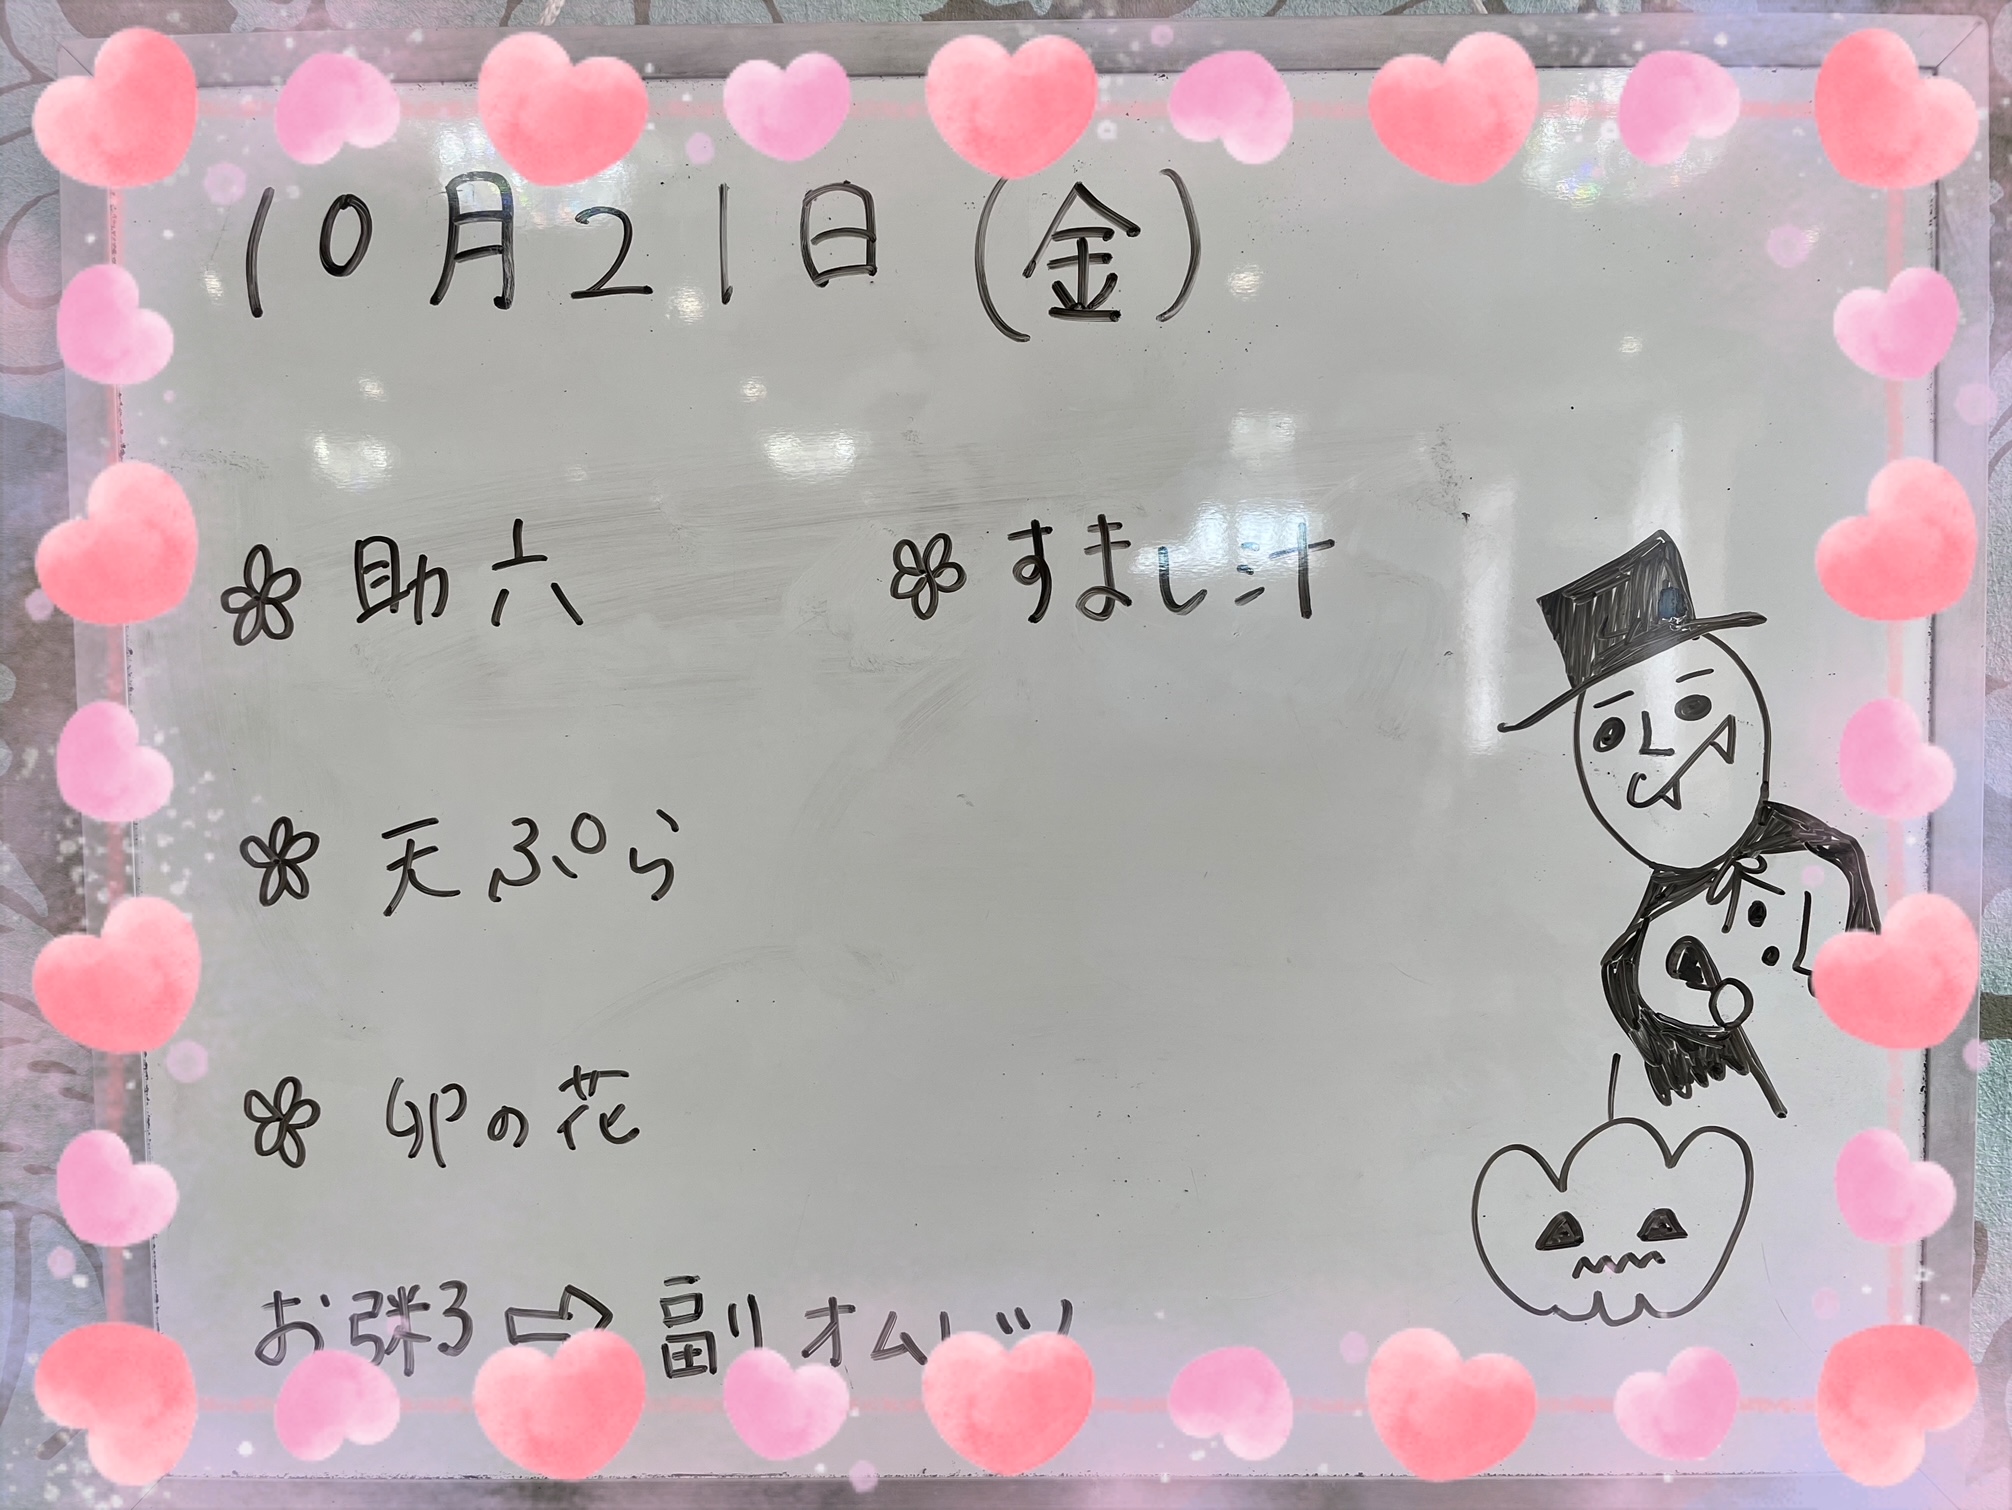 10月21日(金)
助六 すまし汁
天ぷら
卯の花
お粥 ⇨ 副オムレツ